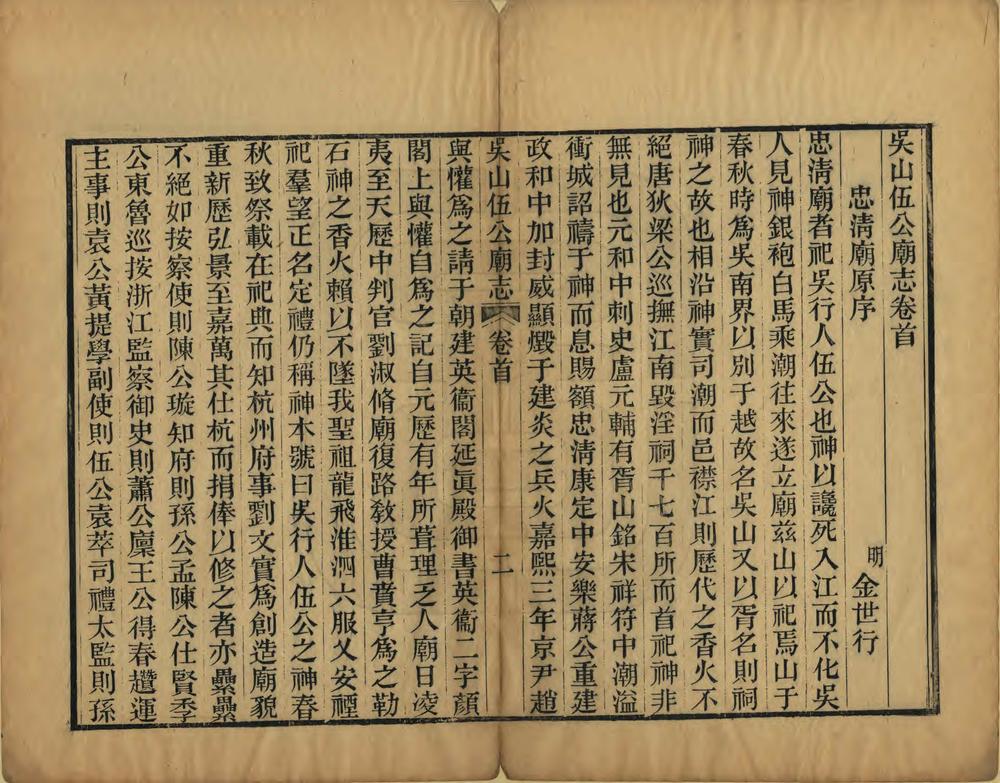 吳山伍公廟志卷首
忠淸廟原序
明 金世行
忠淸廟者祀吳行人伍公也神以讒死入江而不化吳
人見神銀袍白馬乘潮往來遂立廟兹山以祀焉山于
春秋時爲吳南界以别于越故名吳山又以胥名則祠
神之故也相沿神實司潮而邑襟江則歷代之香火不
絕唐狄梁公巡撫江南毀淫祠千七百所而首祀神非
無見也元和中刺史盧元輔有胥山銘宋祥符中潮溢
衝城詔禱于神而息賜額忠淸康定中安樂蔣公重建
政和中加封威顯燬于建炎之兵火嘉熙三年京尹趙
吳山伍公廟志 卷首 二
與懽爲之請于朝建英衞閣延眞殿御書英衞二字顏
閣上與懽自爲之記自元歷有年所葺理乏人廟日凌
夷至天歷中判官劉淑脩廟復路敎授曹賁亨爲之勒
石神之香火賴以不墜我聖祖龍飛淮泗六服乂安禋
祀羣望正名定禮仍稱神本號曰吳行人伍公之神春
秋致祭載在祀典而知杭州府事劉文實爲創造廟貌
重新歷弘景至嘉萬其仕杭而捐俸以修之者亦纍纍
不絕如按察使則陳公璇知府則孫公孟陳公仕賢季
公東魯巡按浙江監察御史則蕭公廩王公得春䜛運
主事則袁公黃提學副使則伍公袁萃司禮太監則孫